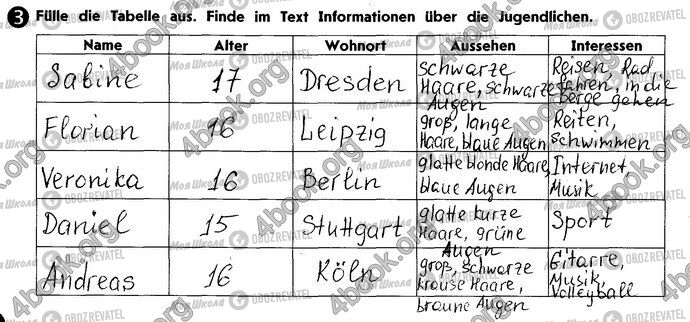 3 Fülle die Tabelle aus. Finde im Text Informationen über die Jugendlichen.
Name Alter Wohnort Aussehen Interessen
Sabine 17 Dresden schwarze Haare, schwarze Augen Reisen, Rad fahren, in die Berge gehen
Florian 16 Leipzig groß, lange Haare, blaue Augen Reiten, schwimmen
Veronika 16 Berlin glatte blonde Haare, blaue Augen Internet, Musik
Daniel 15 Stuttgart glatte kurze Haare, grüne Augen Sport
Andreas 16 Köln groß, schwarze krause Haare, braune Augen Gitarre, Musik, Volleyball
Моя Школа OBOZREVATEL
4book.org